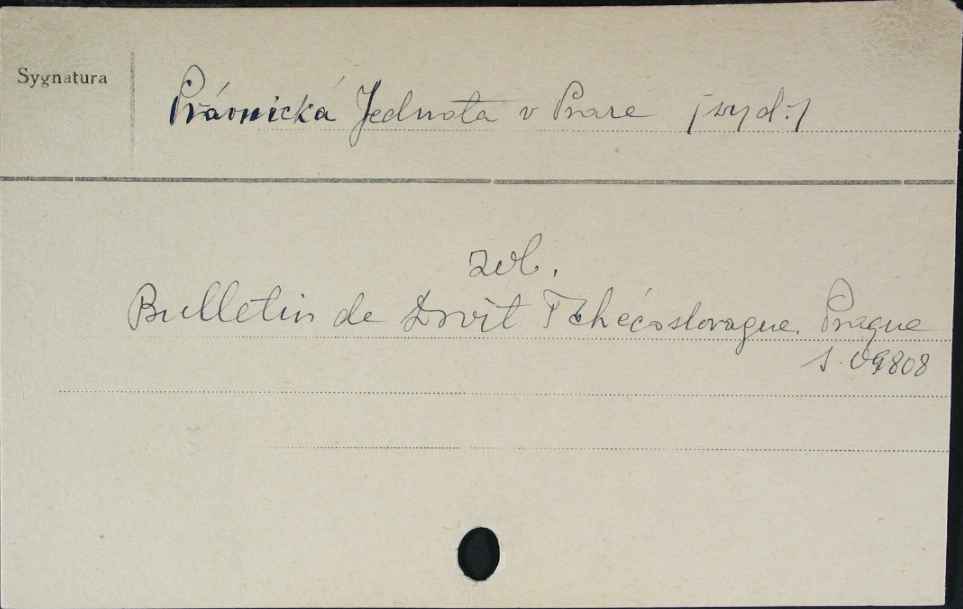 Sygnatura
Právnická Jednota v Praze /wyd:/
zob.
Bulletin de Droit Tchécoslovaque. Prague
S. 09808